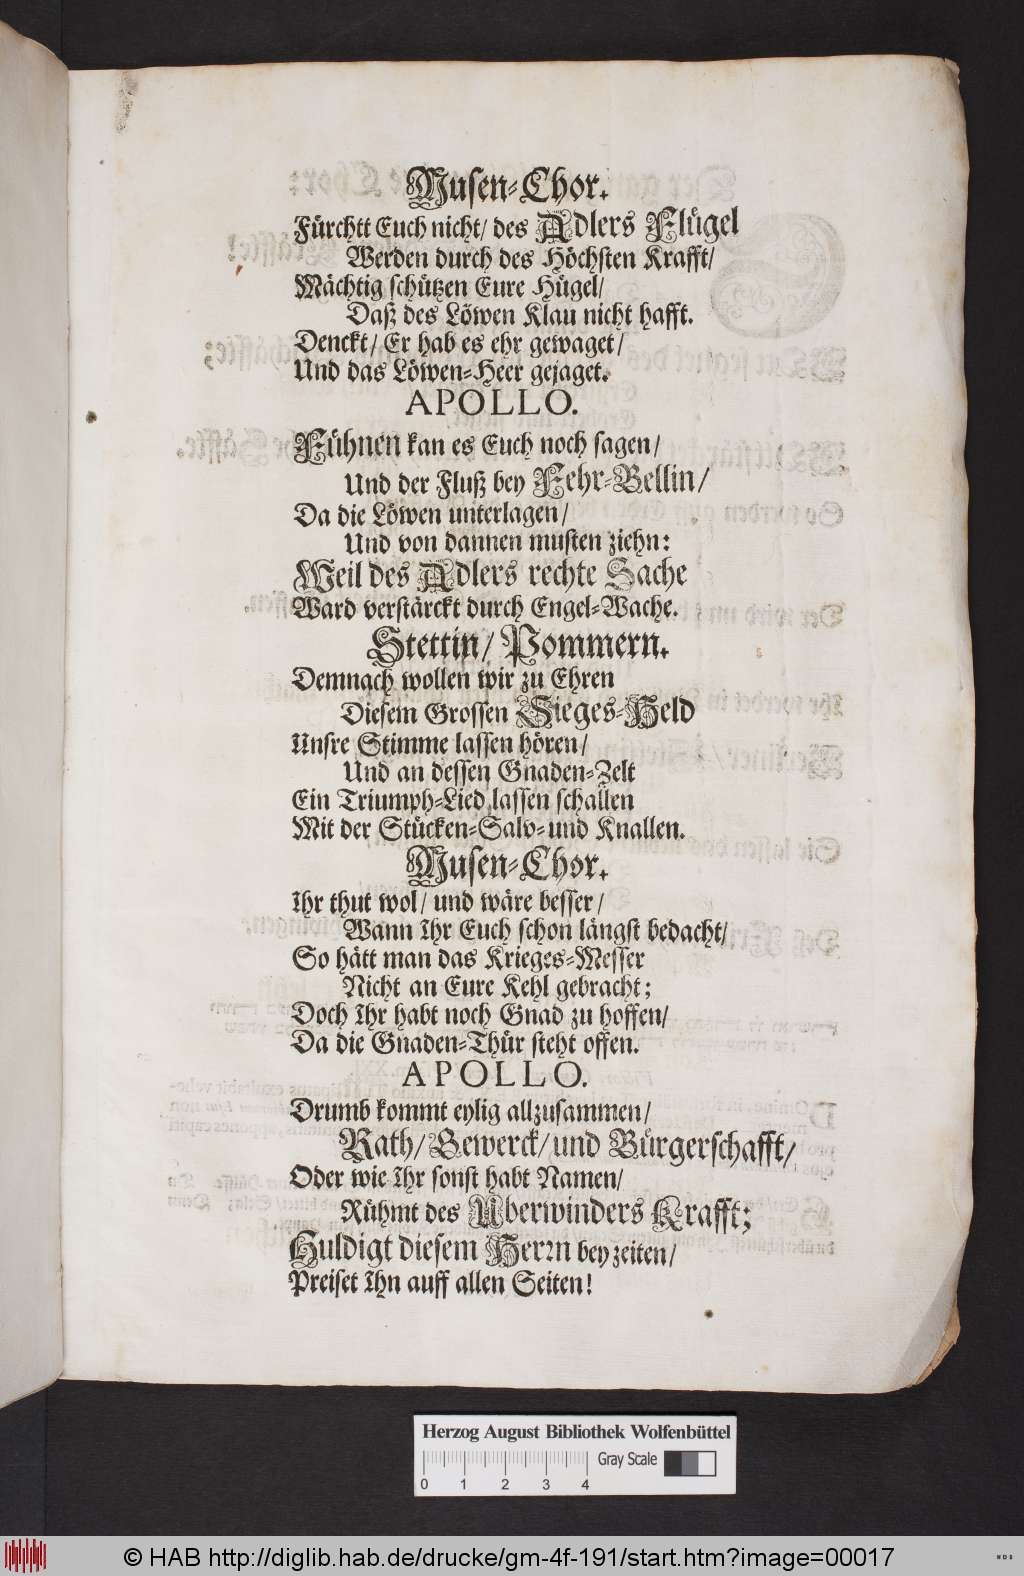 Musen-Chor.
Fürchtt Euch nicht/ des Adlers Flügel
Werden durch des Höchsten Krafft/
Mächtig schützen Eure Hügel/
Daß des Löwen Klau nicht hafft.
Denckt/ Er hab es ehr gewaget/
Und das Löwen-Heer gejaget.
APOLLO.
Fühnen kan es Euch noch sagen/
Und der Fluß bey Fehr-Bellin/
Da die Löwen unterlagen/
Und von dannen musten ziehn:
Weil des Adlers rechte Sache
Ward verstärckt durch Engel-Wache.
Stettin/ Pommern.
Demnach wollen wir zu Ehren
Diesem Grossen Sieges-Held
Unsre Stimme lassen hören/
Und an dessen Gnaden-Zelt
Ein Triumph-Lied lassen schallen
Mit der Stücken-Salv- und Knallen.
Musen-Chor.
Ihr thut wol/ und wäre besser/
Wann Ihr Euch schon längst bedacht/
So hätt man das Krieges-Messer
Nicht an Eure Kehl gebracht;
Doch Ihr habt noch Gnad zu hoffen/
Da die Gnaden-Thür steht offen.
APOLLO.
Drumb kommt eylig allzusammen/
Rath/ Gewerck/ und Bürgerschafft/
Oder wie Ihr sonst habt Namen/
Rühmt des Uberwinders Krafft;
Huldigt diesem Herrn bey zeiten/
Preiset Ihn auff allen Seiten!
Herzog August Bibliothek Wolfenbüttel
Gray Scale
0 1 2 3 4
© HAB http://diglib.hab.de/drucke/gm-4f-191/start.htm?image=00017